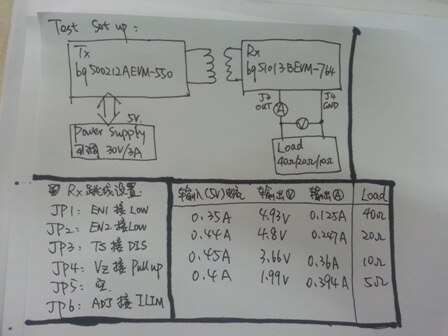 Test Set up:
Tx
bq500212AEVM-550
Rx
bq51013BEVM-764
5V.
Power Supply
30V/3A
J2
OUT
A
V
J4
GND
Load
40Ω/20Ω/10Ω
Rx 跳线设置:
JP1: EN1 接 Low
JP2: EN2 接 Low
JP3: TS 接 DIS
JP4: VZ 接 Pull up
JP5:
JP6: ADJ 接 ILIM
输入(5V)电流 输出V 输出A Load
0.35A 4.93V 0.125A 40Ω
0.44A 4.8V 0.247A 20Ω
0.45A 3.66V 0.36A 10Ω
0.4A 1.99V 0.394A 5Ω